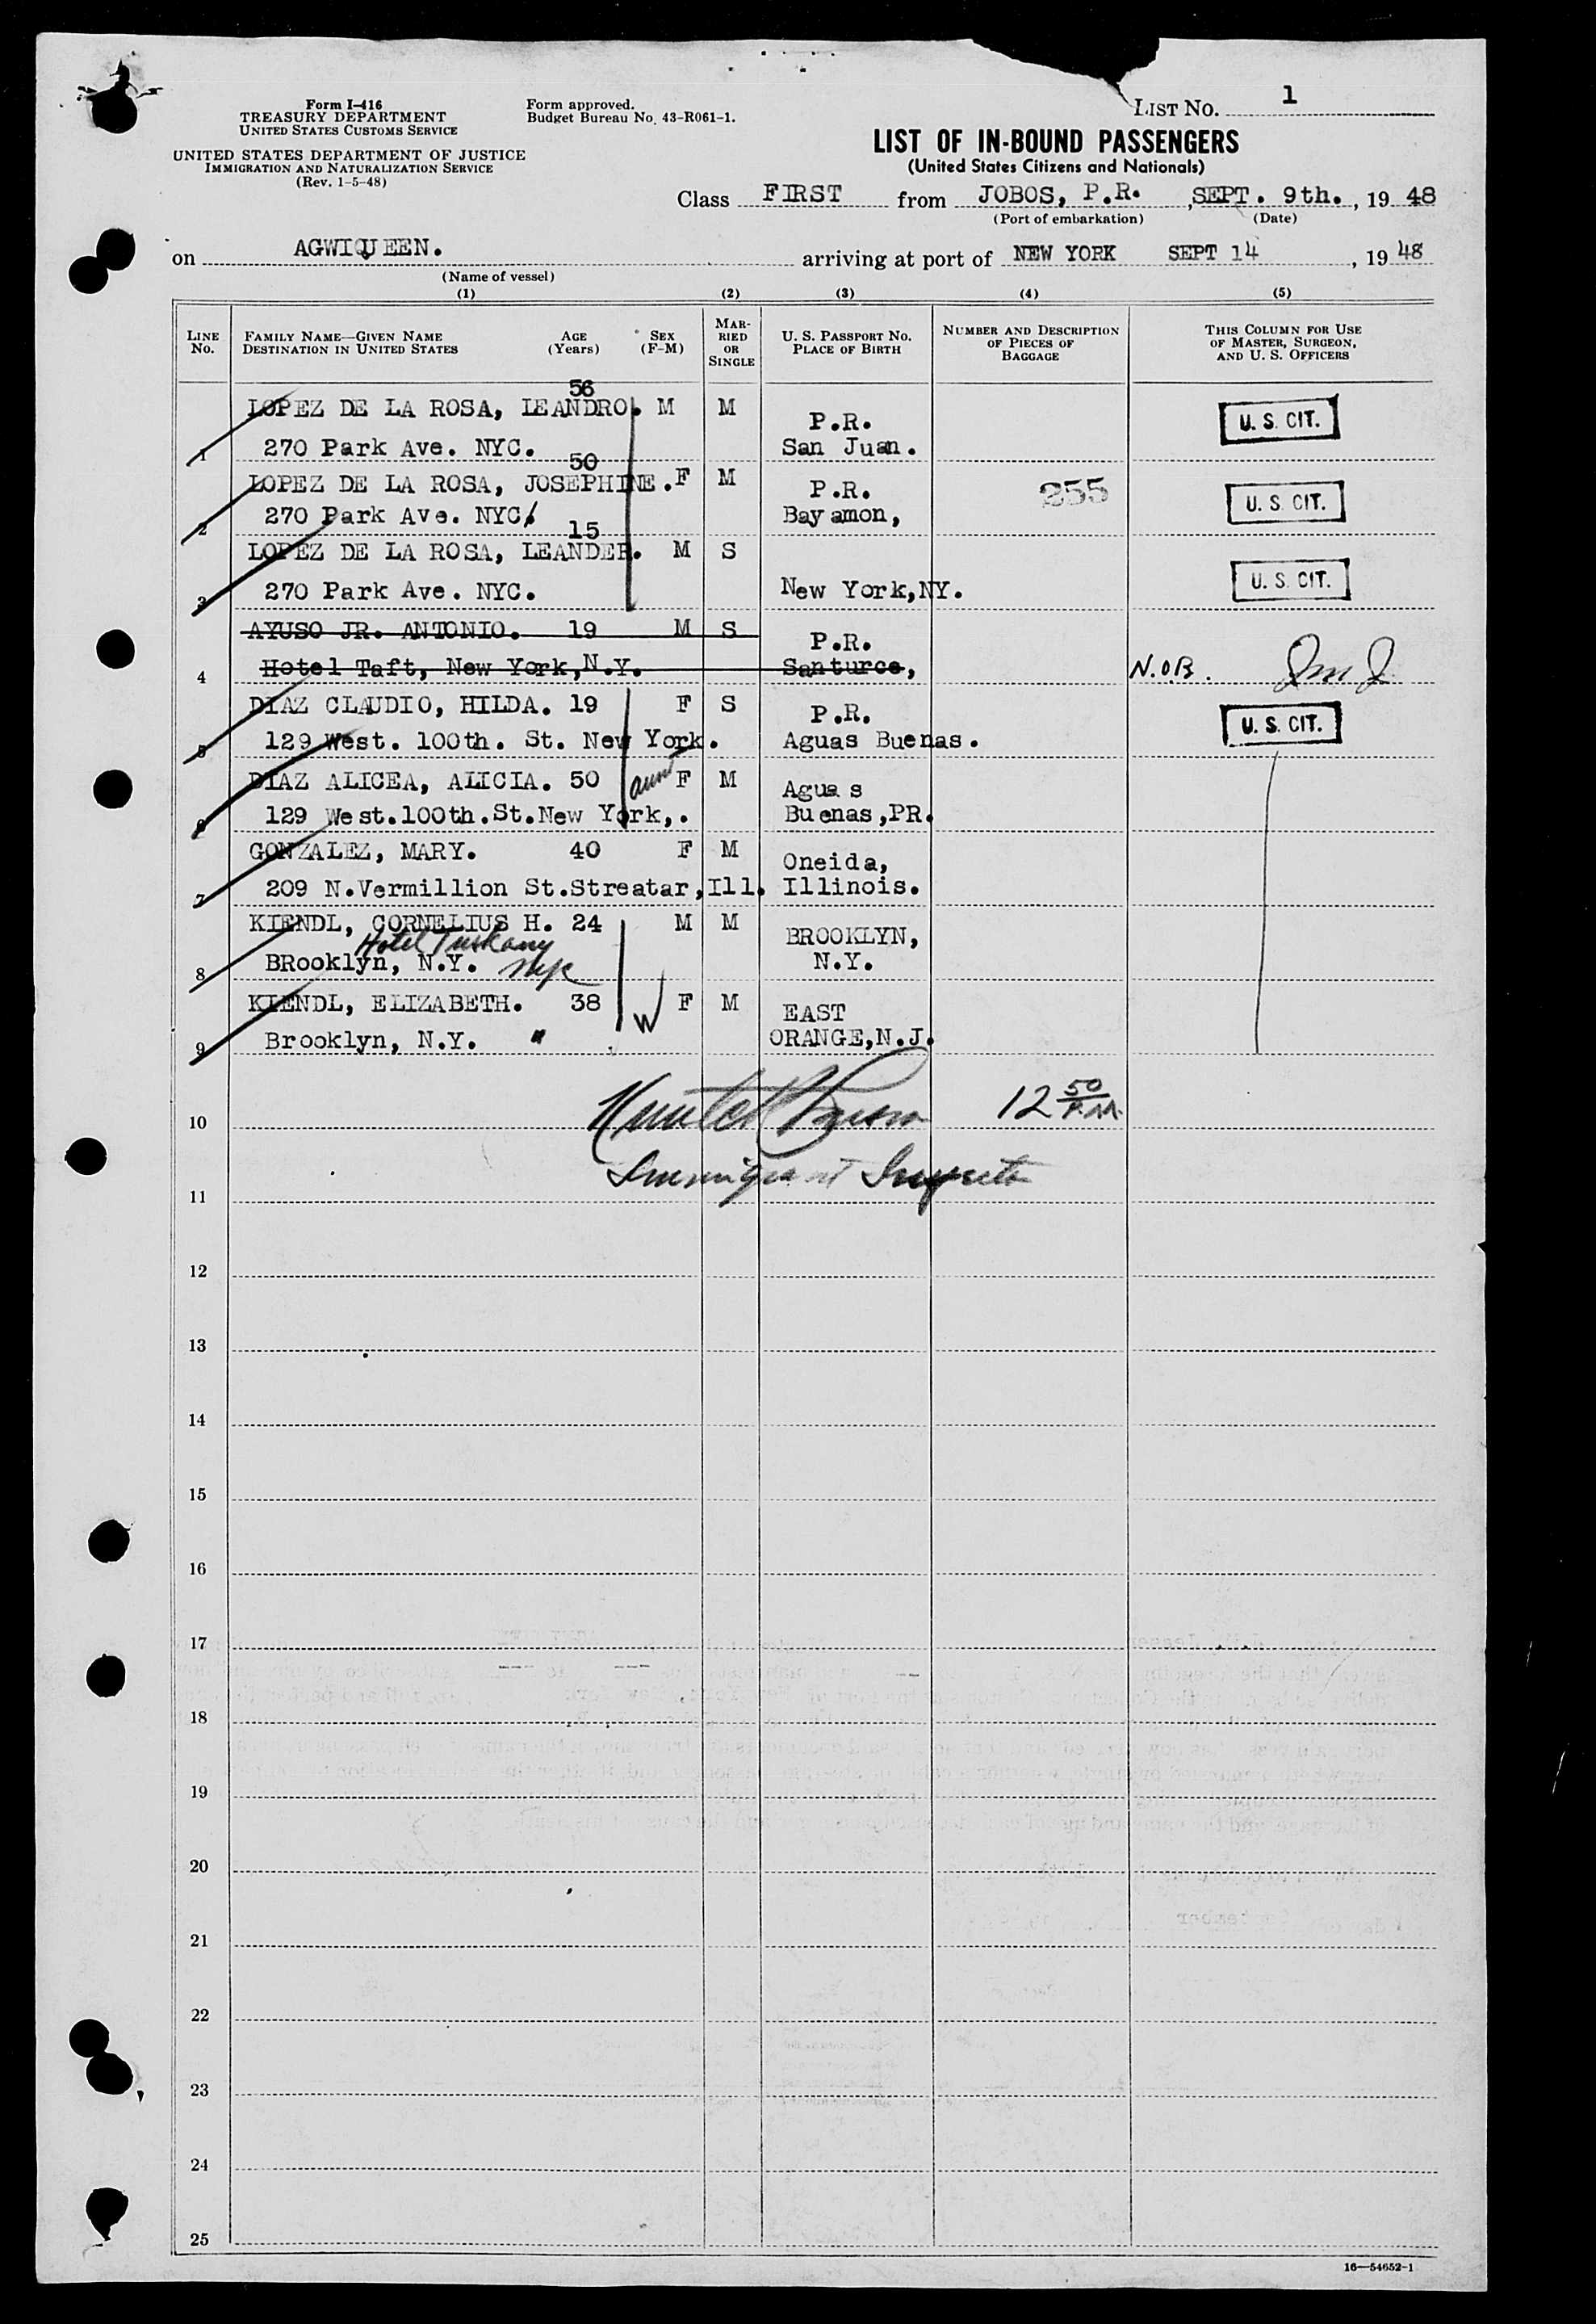 Form I-416
TREASURY DEPARTMENT
UNITED STATES CUSTOMS SERVICE
UNITED STATES DEPARTMENT OF JUSTICE
IMMIGRATION AND NATURALIZATION SERVICE
(Rev. 1-5-48)
Form approved.
Budget Bureau No. 43-R061-1.
LIST NO. 1
LIST OF IN-BOUND PASSENGERS
(United States Citizens and Nationals)
Class FIRST from JOBOS, P.R. , SEPT. 9th. , 19 48
(Port of embarkation) (Date)
on AGWIQUEEN. arriving at port of NEW YORK SEPT 14 , 19 48
(Name of vessel)
(1) (2) (3) (4) (5)
LINE No. FAMILY NAME—GIVEN NAME DESTINATION IN UNITED STATES AGE (Years) SEX (F-M) MARRIED OR SINGLE U. S. PASSPORT NO. PLACE OF BIRTH NUMBER AND DESCRIPTION OF PIECES OF BAGGAGE THIS COLUMN FOR USE OF MASTER, SURGEON, AND U. S. OFFICERS
LOPEZ DE LA ROSA, LEANDRO. 56 M M P.R. U. S. CIT.
1 270 Park Ave. NYC. San Juan.
LOPEZ DE LA ROSA, JOSEPHINE. 50 F M P.R. 255 U. S. CIT.
2 270 Park Ave. NYC. Bayamon,
LOPEZ DE LA ROSA, LEANDER. 15 M S U. S. CIT.
3 270 Park Ave. NYC. New York,NY.
AYUSO JR. ANTONIO. 19 M S P.R.
4 Hotel Taft, New York,N.Y. Santurce, N.O.B.
DIAZ CLAUDIO, HILDA. 19 F S P.R. U. S. CIT.
5 129 West. 100th. St. New York. Aguas Buenas.
DIAZ ALICEA, ALICIA. 50 aunt F M Aguas
6 129 West.100th.St.New York,. Buenas,PR.
GONZALEZ, MARY. 40 F M Oneida,
7 209 N.Vermillion St.Streatar,Ill. Illinois.
KIENDL, CORNELIUS H. 24 M M BROOKLYN,
Hotel Tuskany
8 BRooklyn, N.Y. NYC N.Y.
KIENDL, ELIZABETH. 38 W F M EAST
9 Brooklyn, N.Y. " ORANGE,N.J.
10 12 50 P.M.
Immigrant Inspector
11
12
13
14
15
16
17
18
19
20
21
22
23
24
25
16—54652-1